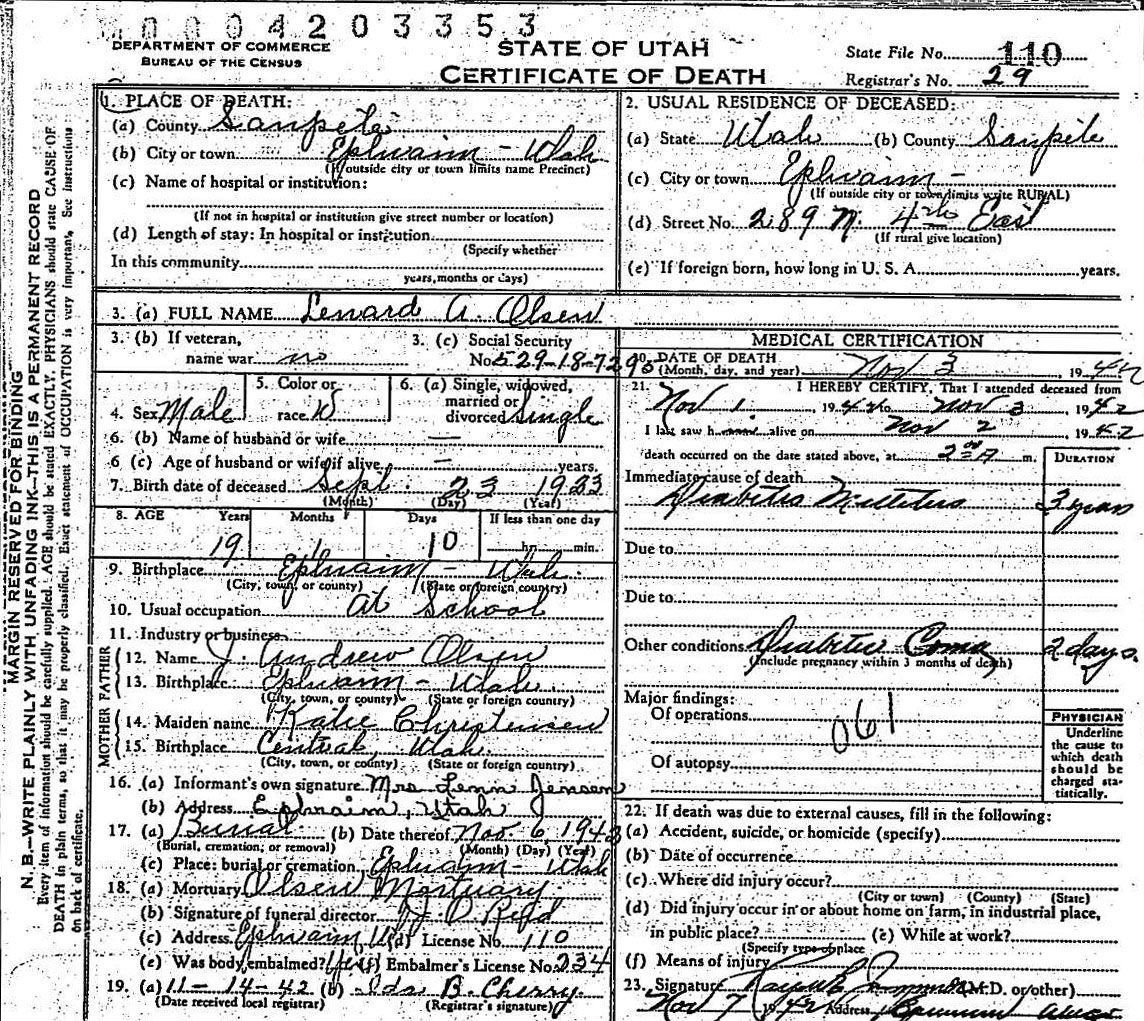 0004203353
DEPARTMENT OF COMMERCE
BUREAU OF THE CENSUS
STATE OF UTAH
CERTIFICATE OF DEATH
State File No. 110
Registrar's No. 29
MARGIN RESERVED FOR BINDING
N. B.—WRITE PLAINLY WITH UNFADING INK—THIS IS A PERMANENT RECORD
Every item of information should be carefully supplied. AGE should be stated EXACTLY. PHYSICIANS should state CAUSE OF
DEATH in plain terms, so that it may be properly classified. Exact statement of OCCUPATION is very important. See instructions
on back of certificate.
1. PLACE OF DEATH:
(a) County Sanpete
(b) City or town Ephraim - Utah
(If outside city or town limits name Precinct)
(c) Name of hospital or institution:
(If not in hospital or institution give street number or location)
(d) Length of stay: In hospital or institution
(Specify whether
In this community
years, months or days)
2. USUAL RESIDENCE OF DECEASED:
(a) State Utah (b) County Sanpete
(c) City or town Ephraim -
(If outside city or town limits write RURAL)
(d) Street No. 289 N. 4th East
(If rural give location)
(e) If foreign born, how long in U. S. A. years.
3. (a) FULL NAME Lenard A. Olsen
3. (b) If veteran,
name war no
3. (c) Social Security
No. 529-18-7293
4. Sex Male
5. Color or
race W
6. (a) Single, widowed,
married or
divorced Single
6. (b) Name of husband or wife —
6 (c) Age of husband or wife if alive — years.
7. Birth date of deceased Sept. 23 1923
(Month) (Day) (Year)
8. AGE Years Months Days If less than one day
19 1 10 hr. min.
9. Birthplace Ephraim - Utah.
(City, town, or county) (State or foreign country)
10. Usual occupation At School
11. Industry or business
FATHER
12. Name J. Andrew Olsen
13. Birthplace Ephraim - Utah.
(City, town, or county) (State or foreign country)
MOTHER
14. Maiden name Katie Christensen
15. Birthplace Central, Utah.
(City, town, or county) (State or foreign country)
16. (a) Informant's own signature Mrs Lenn Jensen
(b) Address Ephraim, Utah
17. (a) Burial (b) Date thereof Nov. 6, 1942
(Burial, cremation, or removal) (Month) (Day) (Year)
(c) Place: burial or cremation Ephraim - Utah
18. (a) Mortuary Olsen Mortuary
(b) Signature of funeral director
(c) Address Ephraim U. (d) License No. 110
(e) Was body embalmed? Yes (f) Embalmer's License No. 234
19. (a) 11-14-42 (b) Ida B. Cherry
(Date received local registrar) (Registrar's signature)
MEDICAL CERTIFICATION
20. DATE OF DEATH
(Month, day, and year) Nov 3 1942
21. I HEREBY CERTIFY, That I attended deceased from
Nov 1. 1942 to Nov 3 1942
I last saw h alive on Nov 2 1942
death occurred on the date stated above, at 2 A m.
DURATION
Immediate cause of death
Diabitis Millitus 3 years
Due to
Due to
Other conditions Diabitis Coma 2 days.
(Include pregnancy within 3 months of death)
Major findings:
Of operations
061
Of autopsy
PHYSICIAN
Underline
the cause to
which death
should be
charged sta-
tistically.
22. If death was due to external causes, fill in the following:
(a) Accident, suicide, or homicide (specify)
(b) Date of occurrence
(c) Where did injury occur?
(City or town) (County) (State)
(d) Did injury occur in or about home on farm, in industrial place,
in public place? (e) While at work?
(Specify type of place
(f) Means of injury
23. Signature (M.D. or other)
Nov 7 1942 Address